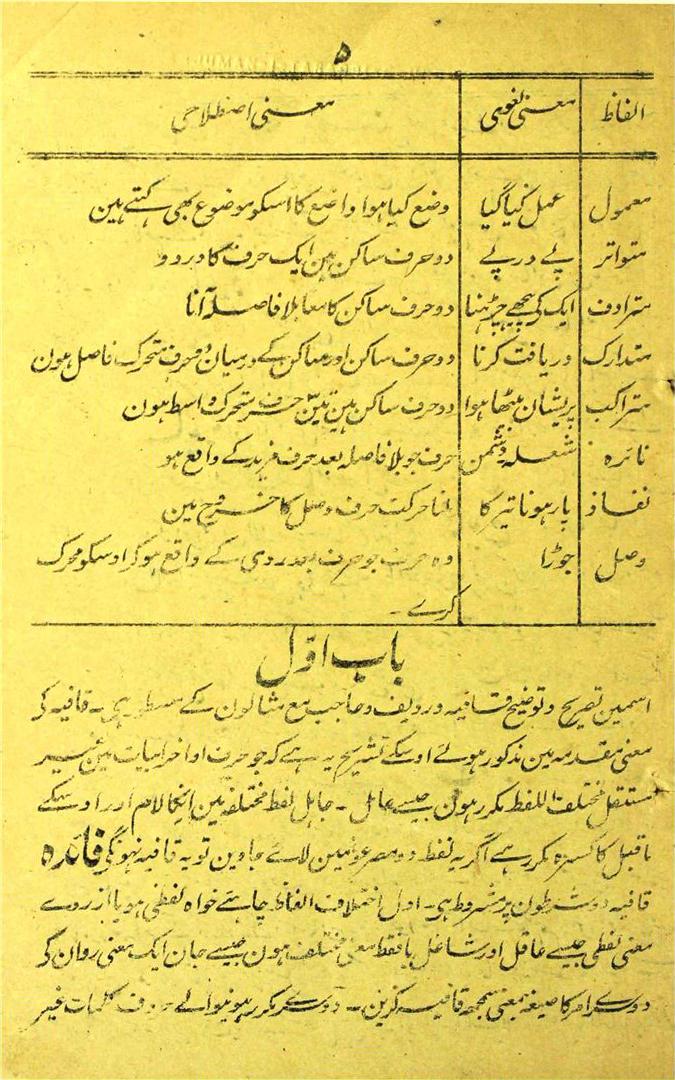 ۵
الفاظ معنی لغوی معنی اصطلاحی
معمول عمل کیا گیا وضع کیا ہوا واضع کا اسکو موضوع بھی کہتے ہین
متواتر پے درپے دو حرف ساکن ہین ایک حرف کا
مترادف ایک کی پیچھے چڑہنا دو حرف ساکن کا بلا فاصلہ آنا
متدارک دریافت کرنا دو حرف ساکن اور ساکن کے درمیان دو حرف متحرک فاصل ہون
متراکب پریشان بیٹھا ہوا دو حرف ساکن ہین تین حرف متحرک واسط ہون
نائرہ شعلہ دشمن حرف جو بلا فاصلہ بعد حرف مزید کے واقع ہو
نفاذ پار ہونا تیر کا حرکت حرف وصل کا خروج ہین
وصل جوڑا وہ حرف جو حرف بعد روی کے واقع ہو کر اوسکو محرک
کرے ۔
باب اوّل
اسمین تصریح و توضیح قافیہ و ردیف و حاجب مع مثالون کے مسطور ہی ۔ قافیہ کی
معنی مقدمہ مین مذکور ہوئے اوسکے تشریح یہ ہے کہ جو حرف اواخر ابیات مین غیر
مستقل مختلف اللفظ مکرر ہون جیسے عامل ۔ جاہل لفظ مختلفہ مین انکا لام اور اوسکے
ماقبل کا کسرہ مکرر ہے اگر یہ لفظ دو مصرعونمین لائے جاوین تو یہ قافیہ ہونگی فائدہ
قافیہ دو شرطون پر مشروط ہی ۔ اول اختلاف الفاظ چاہئے خواہ لفظی ہو یا از روے
معنی لفظی جیسے عاقل اور شاغل یا فقط معنی مختلف ہون جیسے جان ایک معنی روان کی
دوسرے امر کا صیغہ بمعنی سمجھ قافیہ کرین ۔ دوسرے مکرر ہونیوالے حروف کلمات غیر